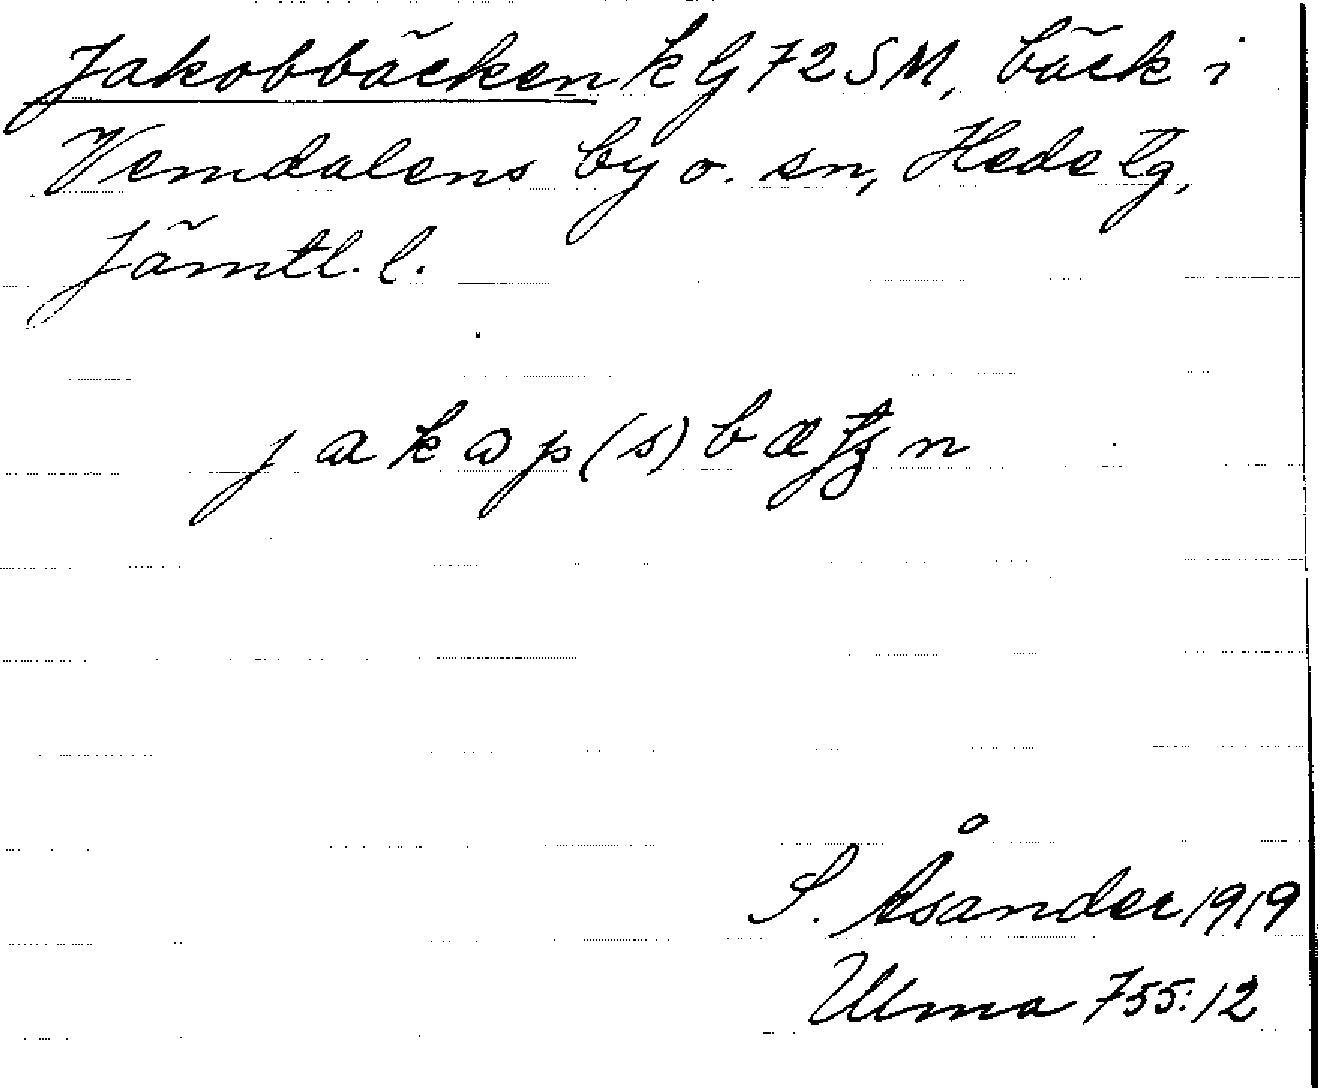 Jakobbäcken k G 72 SM, bäck i
Vemdalens by o. sn, Hede tg,
Jämtl. l.
S. Åsander 1919
Ulma 755:12